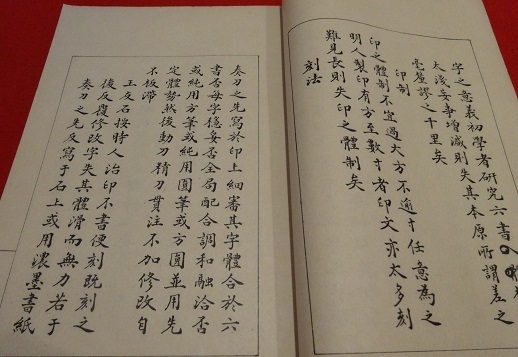 字之意義初學者研究六書
太淺妄爭增減則失其本原所謂差之
毫釐謬之千里矣
印制
印之體制不宜過大方不逾寸任意為之
明人製印有方至數寸者印文亦太多刻
難見長則失印之體制矣
刻法
奏刀之先寫於印上細審其字體合於六
書否每字穩妥否全局配合調和融洽否
或純用方筆或純用圓筆或方圓並用先
定體勢然後動刀精刀貫注不加修改自
不板滯
王友石按時人治印不書便刻既刻之
後反覆修改字失其體滑而無力若于
奏刀之先反寫于石上或用濃墨書紙